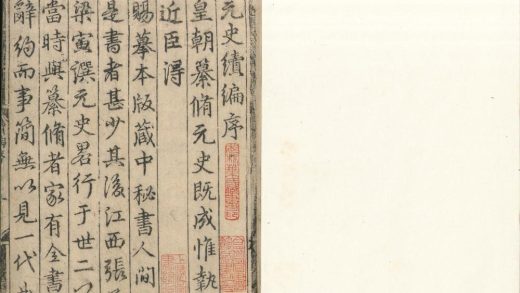 元史續編序
皇朝纂脩元史既成惟執
近臣得
賜摹本版藏中秘書人間
是書者甚少其後江西張
梁寅譔元史畧行于世二
當時與纂脩者家有全書
辭約而事簡無以見一代